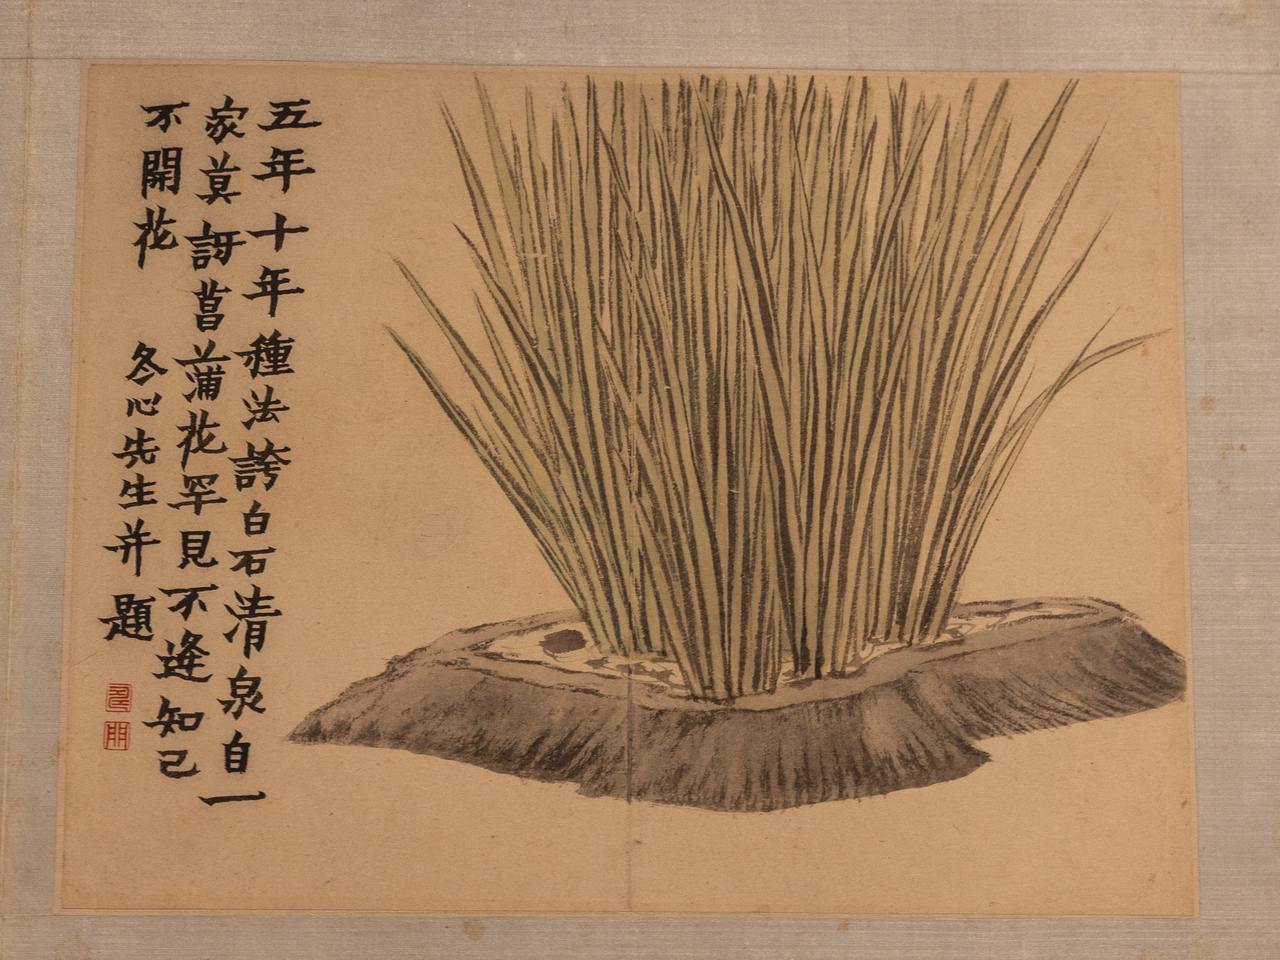 五年十年種法誇白石清泉自一
家莫訝菖蒲花罕見不逄知己
不開花
冬心先生并題